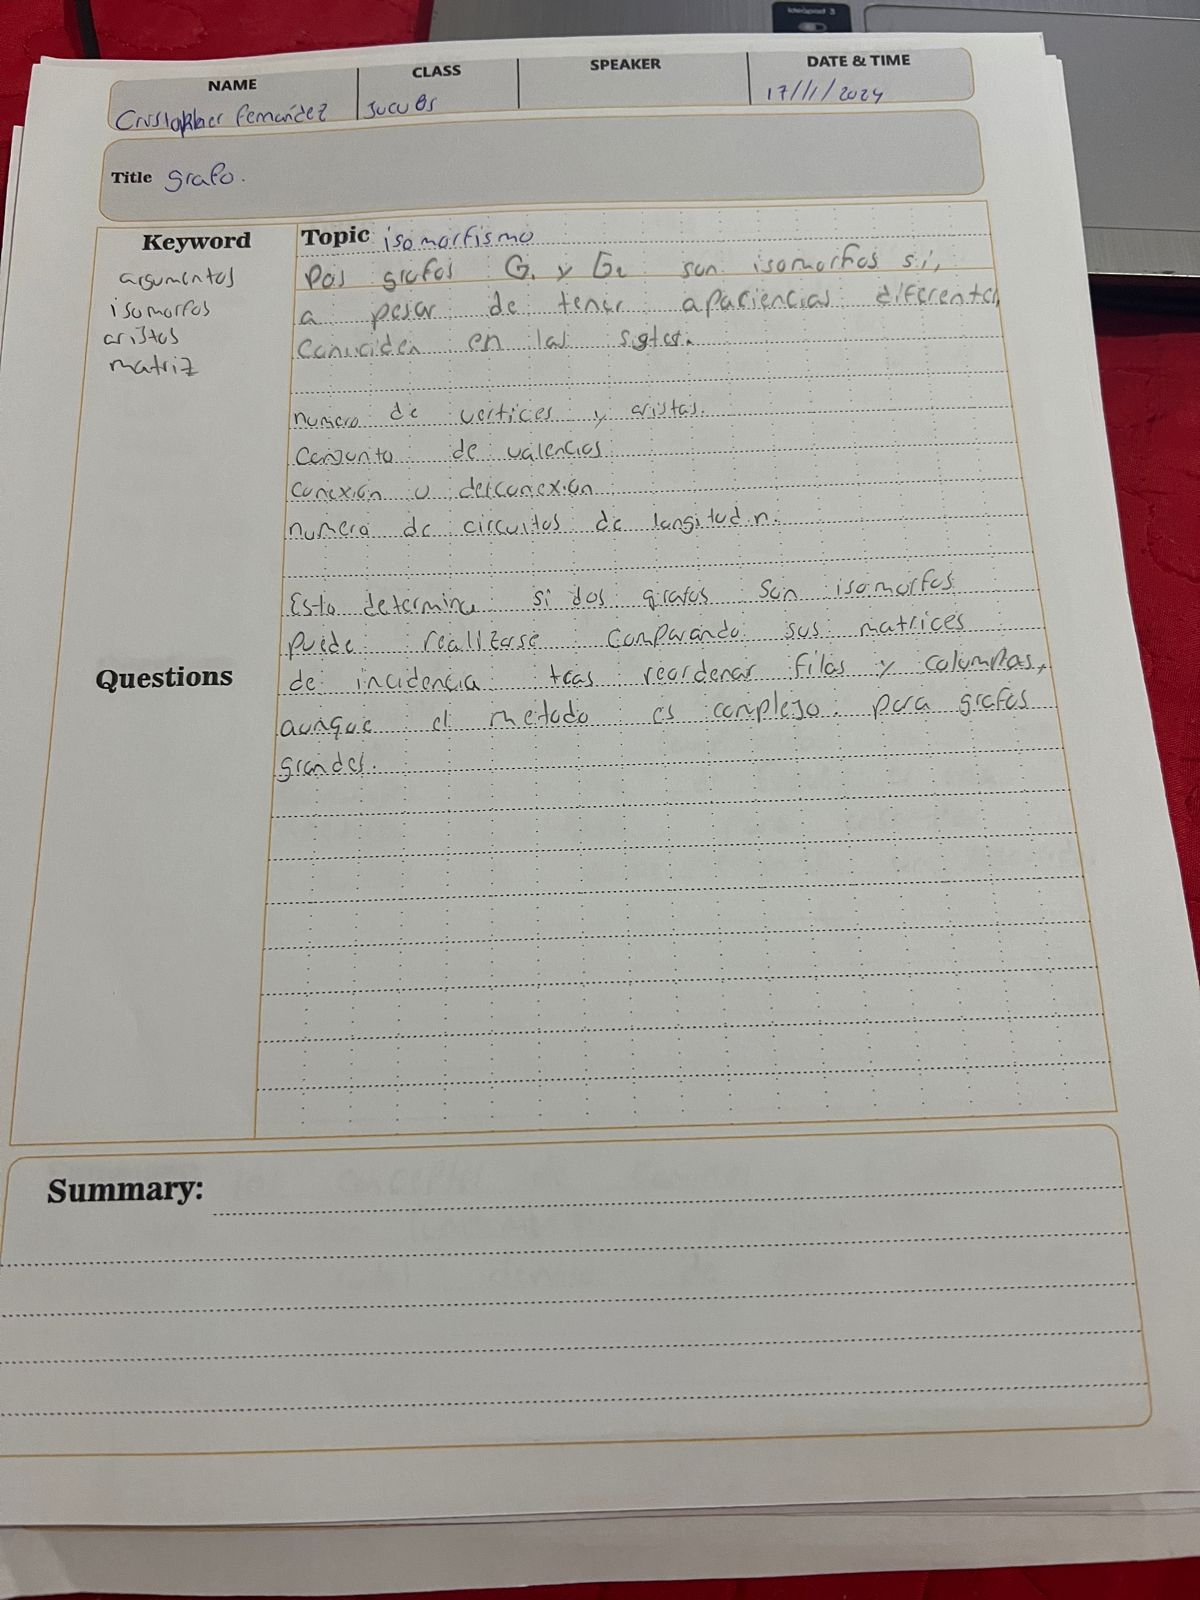 ideapad 3
NAME
CLASS
SPEAKER
DATE & TIME
Cristopher Fernández
17/11/2024
Title grafo.
Keyword
argumentos
isomorfos
aristas
matriz
Topic isomorfismo
Dos grafos G1 y G2 son isomorfos si,
a pesar de tener apariencias diferentes,
Coinciden en las sgtes.
numero de vertices y aristas.
Conjunto de valencias
Conexión o desconexión
numero de circuitos de longitud n.
Esto determina si dos grafos son isomorfos
puede realizarse comparando sus matrices
de incidencia tras reordenar filas y columnas,
aunque el metodo es complejo para grafos
grandes.
Questions
Summary: